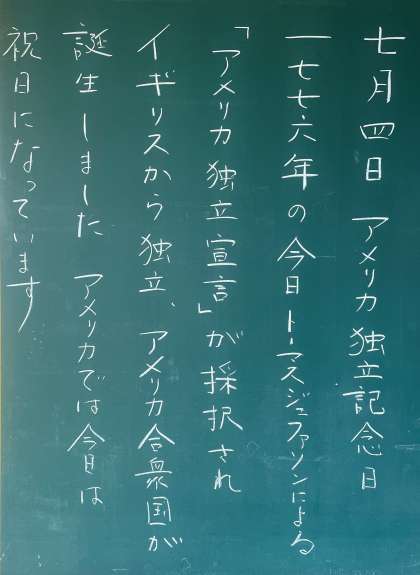 七月四日 アメリカ独立記念日
一七七六年の今日トーマスジェファソンによる
「アメリカ独立宣言」が採択され
イギリスから独立、アメリカ合衆国が
誕生しました アメリカでは今日は
祝日になっています